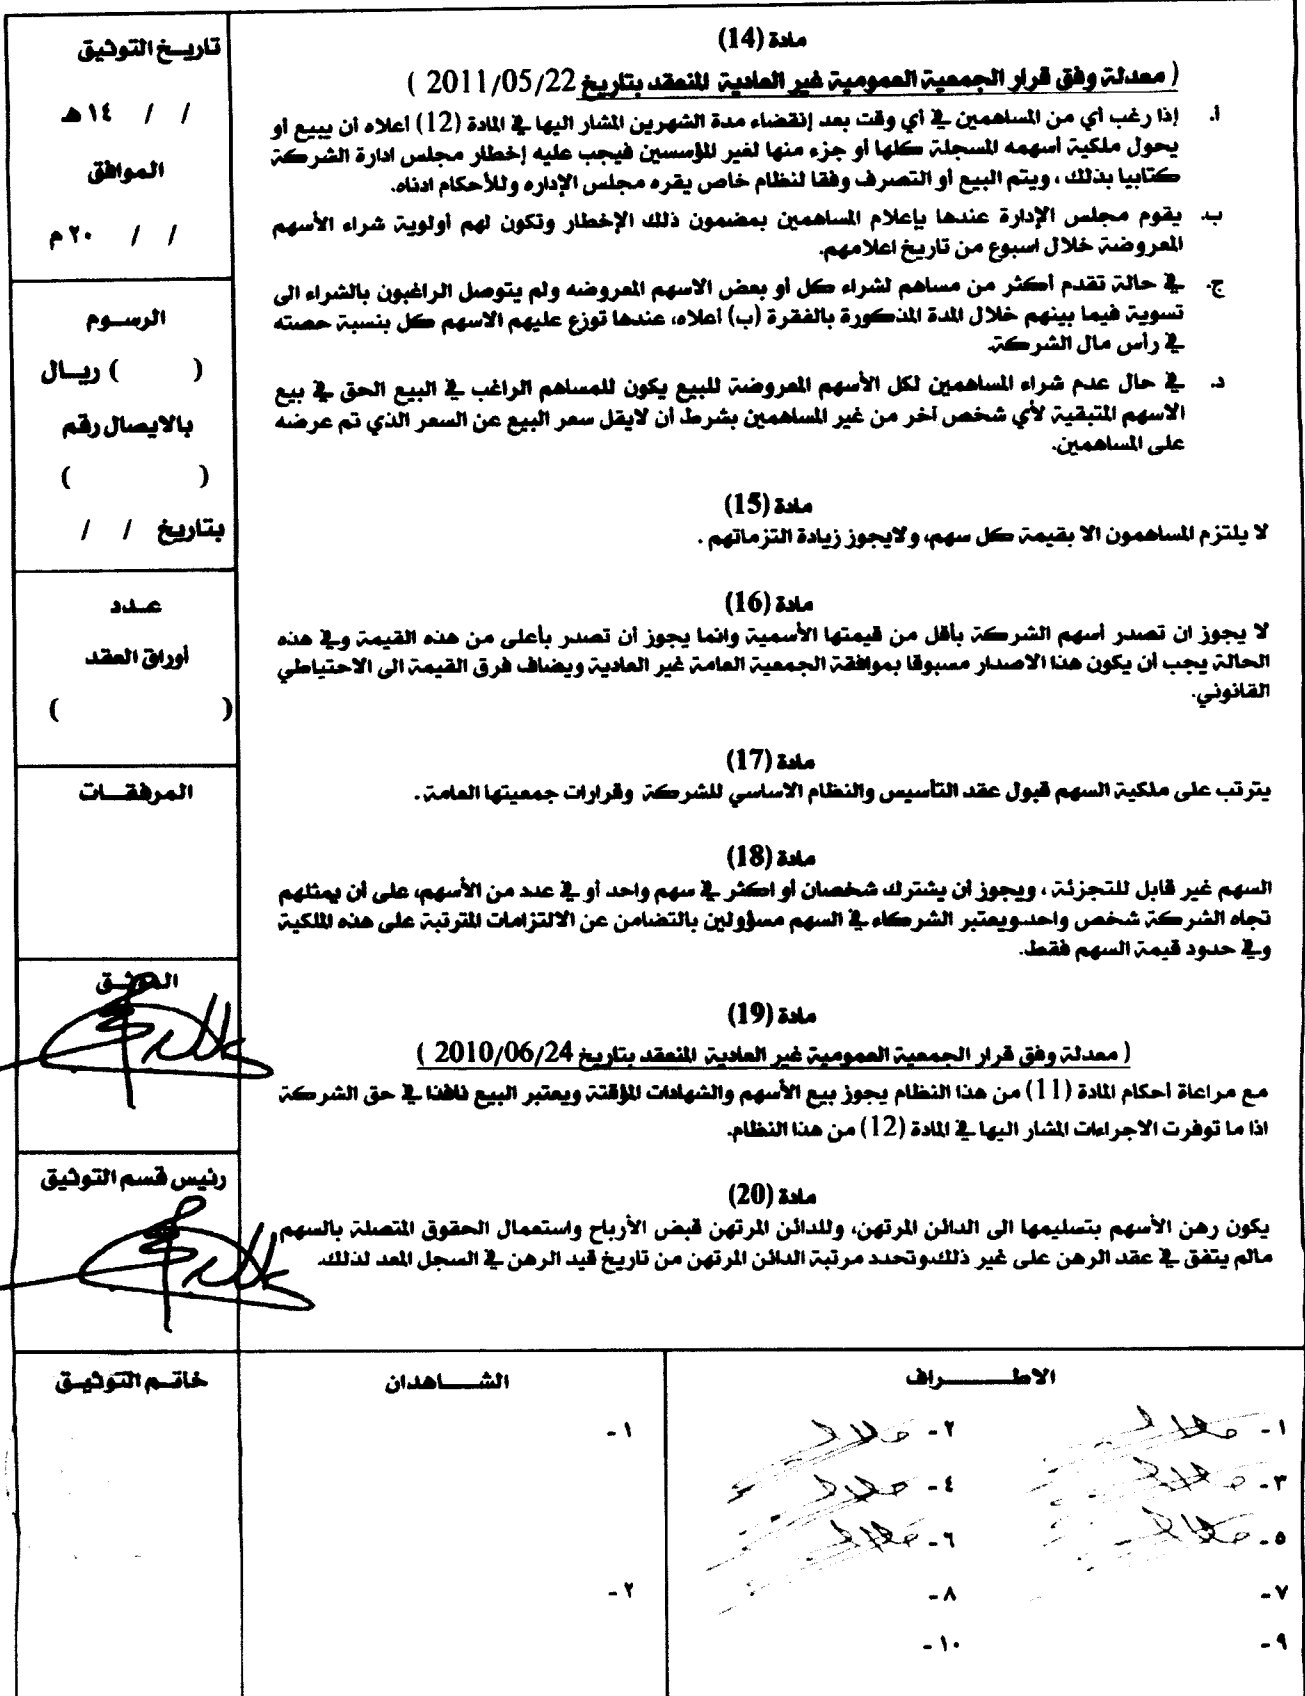 مادة (14)
( معدلة وفق قرار الجمعية العمومية غير العادية المنعقد بتاريخ 2011/05/22 )
أ. إذا رغب أي من المساهمين في أي وقت بعد إنقضاء مدة الشهرين المشار اليها في المادة (12) أعلاه أن يبيع أو
يحول ملكية أسهمه المسجلة كلها أو جزء منها لغير المؤسسين فيجب عليه إخطار مجلس ادارة الشركة
كتابيا بذلك ، ويتم البيع أو التصرف وفقا لنظام خاص يقره مجلس الإداره وللأحكام ادناه.
ب. يقوم مجلس الإدارة عندها بإعلام المساهمين بمضمون ذلك الإخطار وتكون لهم أولوية شراء الأسهم
المعروضة خلال اسبوع من تاريخ اعلامهم.
ج. في حالة تقدم أكثر من مساهم لشراء كل أو بعض الاسهم المعروضه ولم يتوصل الراغبون بالشراء الى
تسوية فيما بينهم خلال المدة المذكورة بالفقرة (ب) أعلاه، عندها توزع عليهم الاسهم كل بنسبة حصته
في رأس مال الشركة.
د. في حال عدم شراء المساهمين لكل الأسهم المعروضة للبيع يكون للمساهم الراغب في البيع الحق في بيع
الاسهم المتبقية لأي شخص آخر من غير المساهمين بشرط أن لايقل سعر البيع عن السعر الذي تم عرضه
على المساهمين.
مادة (15)
لا يلتزم المساهمون الا بقيمة كل سهم، ولايجوز زيادة التزماتهم .
مادة (16)
لا يجوز ان تصدر أسهم الشركة بأقل من قيمتها الأسمية وانما يجوز أن تصدر بأعلى من هذه القيمة وفي هذه
الحالة يجب أن يكون هذا الاصدار مسبوقا بموافقة الجمعية العامة غير العادية ويضاف فرق القيمة الى الاحتياطي
القانوني.
مادة (17)
يترتب على ملكية السهم قبول عقد التأسيس والنظام الاساسي للشركة وقرارات جمعيتها العامة .
مادة (18)
السهم غير قابل للتجزئة ، ويجوز أن يشترك شخصان أو اكثر في سهم واحد أو في عدد من الأسهم، على أن يمثلهم
تجاه الشركة شخص واحد.ويعتبر الشركاء في السهم مسؤولين بالتضامن عن الالتزامات المترتبة على هذه الملكية
وفي حدود قيمة السهم فقط.
مادة (19)
( معدلة وفق قرار الجمعية العمومية غير العادية المنعقد بتاريخ 2010/06/24 )
مع مراعاة أحكام المادة (11) من هذا النظام يجوز بيع الأسهم والشهادات المؤقتة ويعتبر البيع نافذا في حق الشركة
اذا ما توفرت الاجراءات المشار اليها في المادة (12) من هذا النظام.
مادة (20)
يكون رهن الأسهم بتسليمها الى الدائن المرتهن، وللدائن المرتهن قبض الأرباح واستعمال الحقوق المتصلة بالسهم
مالم يتفق في عقد الرهن على غير ذلك.وتحدد مرتبة الدائن المرتهن من تاريخ قيد الرهن في السجل المعد لذلك.
تاريخ التوثيق
/ / ١٤ هـ
الموافق
/ / ٢٠ م
الرسوم
( ) ريال
بالايصال رقم
( )
بتاريخ / /
عدد
أوراق العقد
( )
المرفقات
الموثق
رئيس قسم التوثيق
الاطراف
١ -
٢ -
٣ -
٤ -
٥ -
٦ -
٧ -
٨ -
٩ -
١٠ -
الشاهدان
١ -
٢ -
خاتم التوثيق